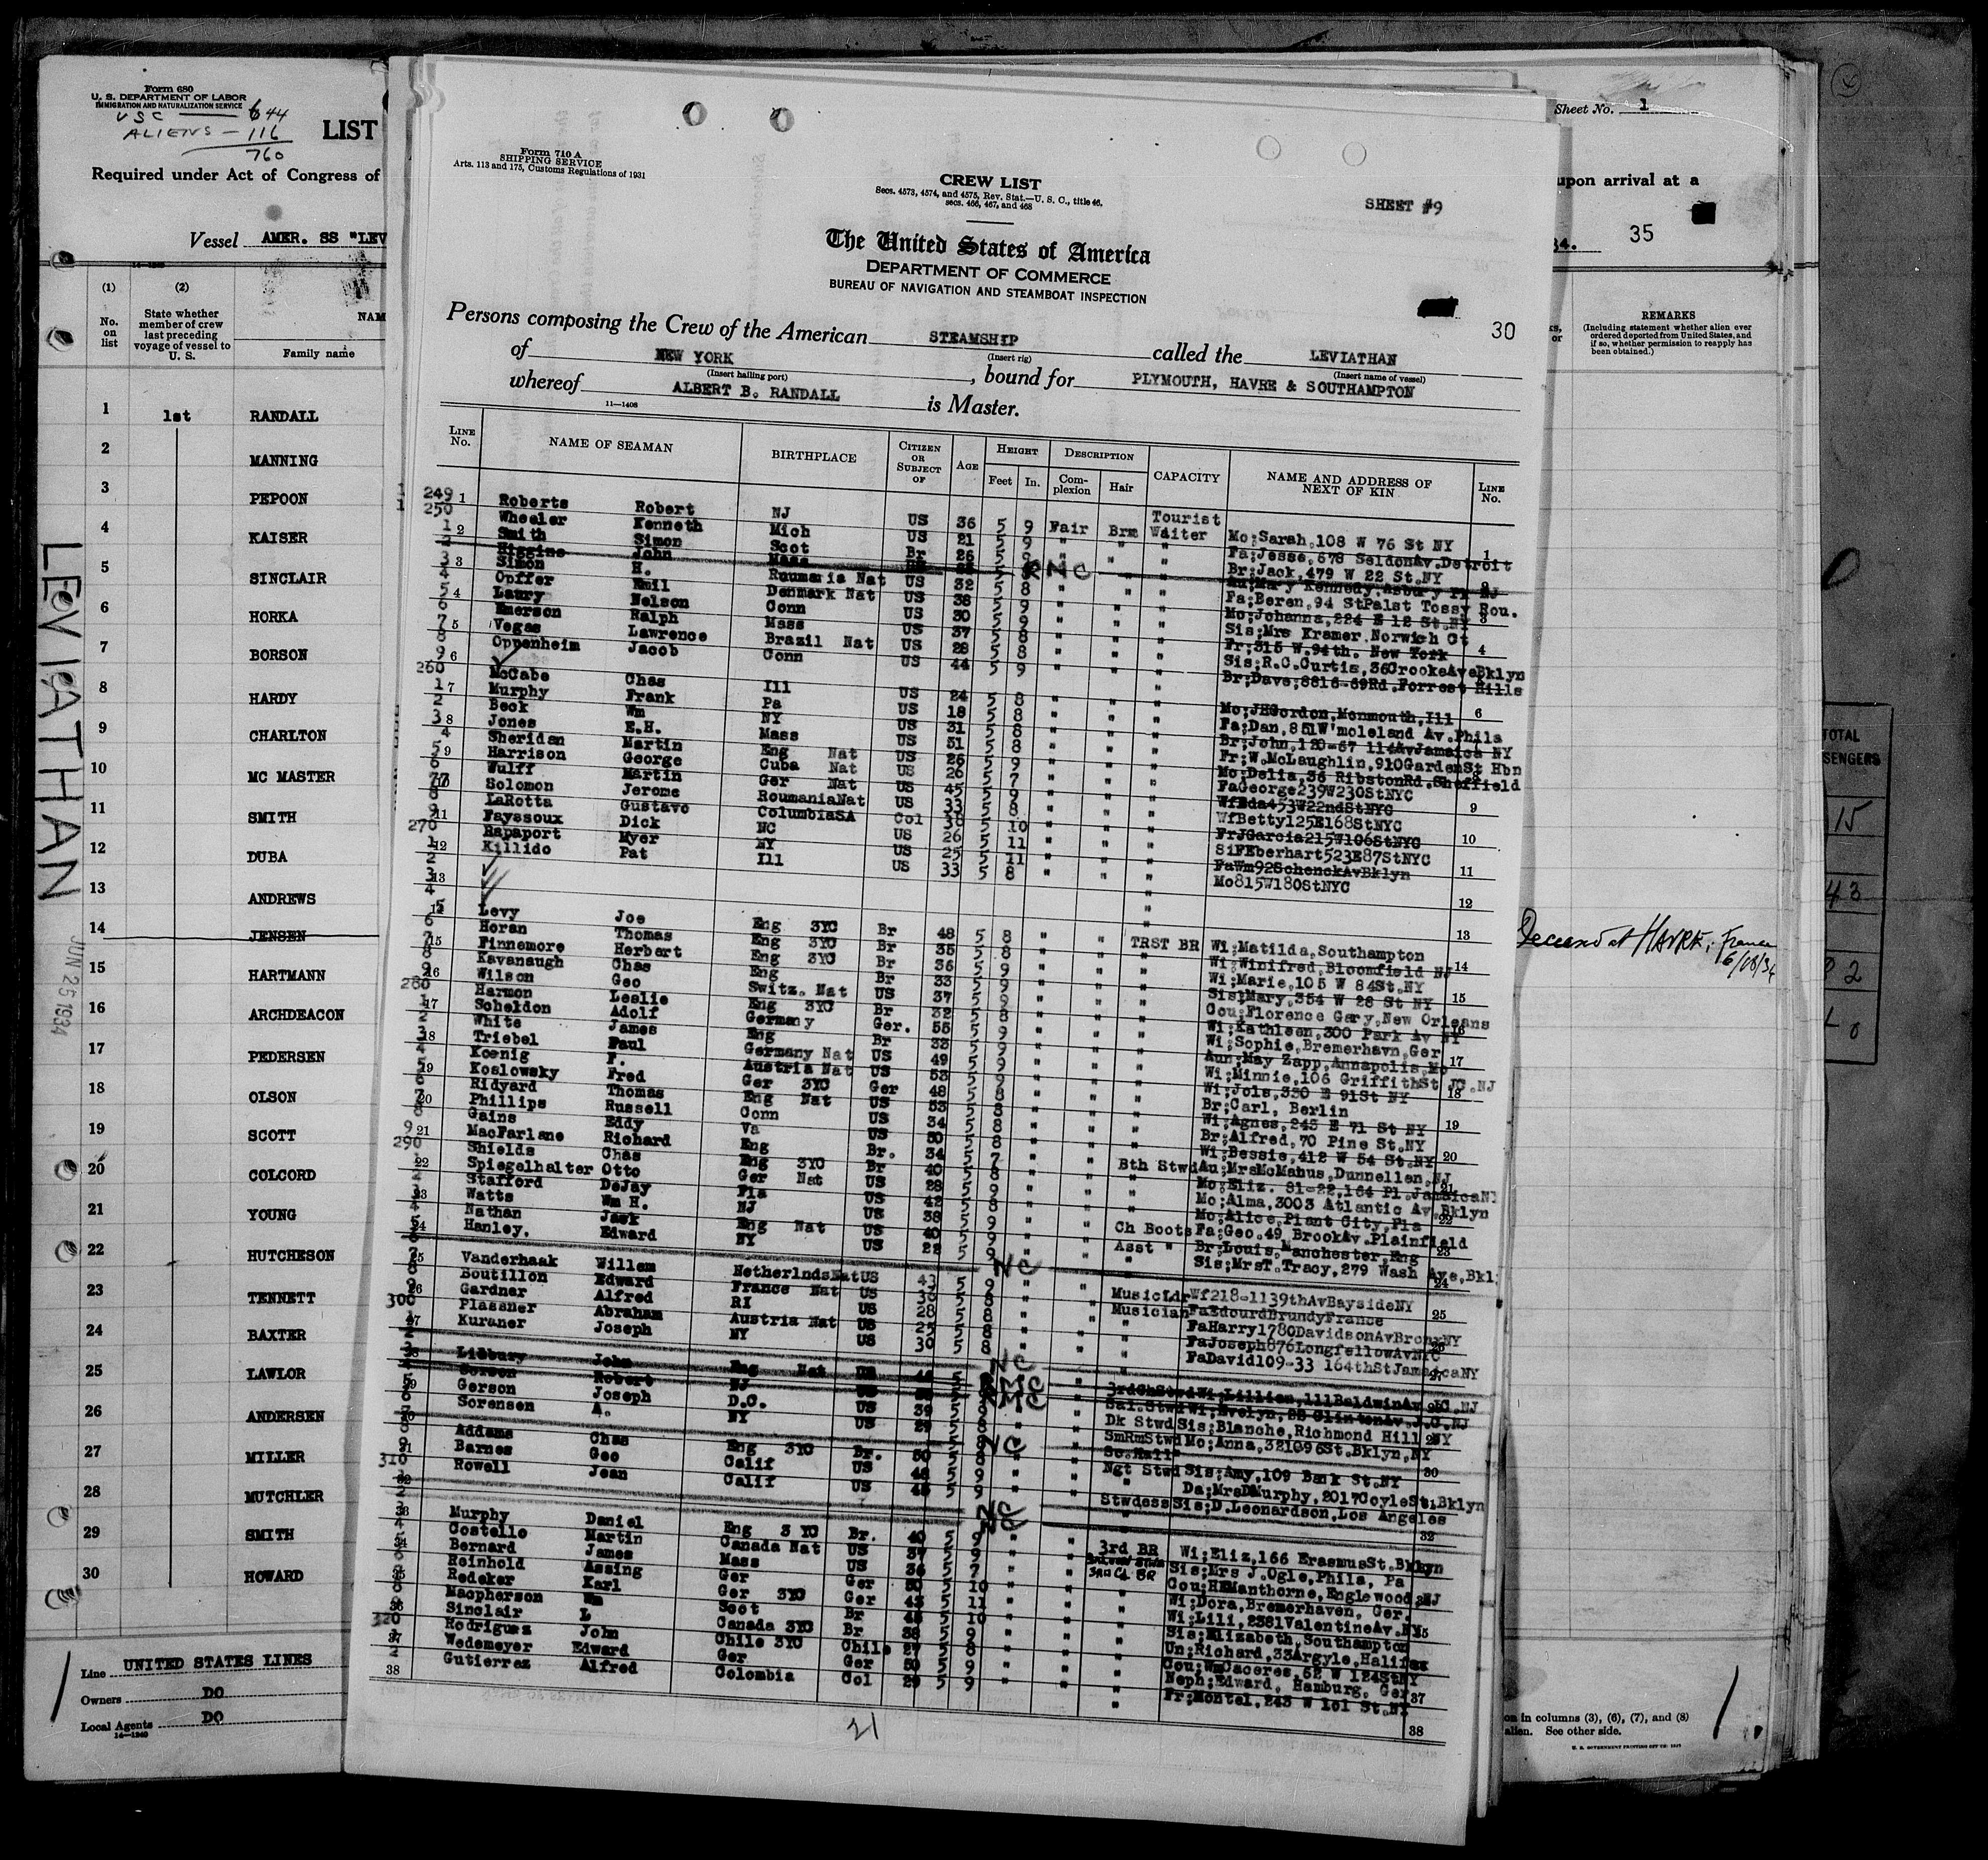 Form 680
U. S. DEPARTMENT OF LABOR
IMMIGRATION AND NATURALIZATION SERVICE
USC — 644
ALIENS — 116
760
LIST
Required under Act of Congress of
Vessel AMER. SS "LEV
(1) (2)
No. on list
State whether member of crew last preceding voyage of vessel to U. S.
NAM
Family name
1 1st RANDALL
2 MANNING
3 PEPOON
4 KAISER
5 SINCLAIR
6 HORKA
7 BORSON
8 HARDY
9 CHARLTON
10 MC MASTER
11 SMITH
12 DUBA
13 ANDREWS
14 JENSEN
15 HARTMANN
16 ARCHDEACON
17 PEDERSEN
18 OLSON
19 SCOTT
20 COLCORD
21 YOUNG
22 HUTCHESON
23 TENNETT
24 BAXTER
25 LAWLOR
26 ANDERSEN
27 MILLER
28 MUTCHLER
29 SMITH
30 HOWARD
LEVIATHAN
JUN 25 1934
Line UNITED STATES LINES
Owners DO
Local Agents DO
14—1240
Form 710 A
SHIPPING SERVICE
Arts. 113 and 175, Customs Regulations of 1931
CREW LIST
Secs. 4573, 4574, and 4575, Rev. Stat.—U. S. C., title 46,
secs. 466, 467, and 468
SHEET #9
The United States of America
DEPARTMENT OF COMMERCE
BUREAU OF NAVIGATION AND STEAMBOAT INSPECTION
30
Persons composing the Crew of the American STEAMSHIP called the LEVIATHAN
(Insert rig) (Insert name of vessel)
of NEW YORK, bound for PLYMOUTH, HAVRE & SOUTHAMPTON
(Insert hailing port)
whereof ALBERT B. RANDALL is Master.
11—1408
LINE No. NAME OF SEAMAN BIRTHPLACE CITIZEN OR SUBJECT OF AGE HEIGHT DESCRIPTION CAPACITY NAME AND ADDRESS OF NEXT OF KIN LINE No.
Feet In. Complexion Hair
249 Roberts Robert NJ US 36 5 9 Fair Brn Tourist Waiter Mo;Sarah,108 W 76 St NY
250 Wheeler Kenneth Mich US 21 5 9 " " " Fa;Jesse,678 SeldonAv.Detroit
1 Smith Simon Scot Br 26 5 9 " " " Br;Jack,479 W 22 St.NY
2 Higgins John Mass NC Au;Mary Kennedy,Asbury Pk NJ
3 Simon H. Roumania Nat US 32 5 8 " " " Fa;Beren,94 StPalst Tossy Rou.
4 Opffer Emil Denmark Nat US 38 5 9 " " " Mo;Johanna,224 E 12 St.NY
5 Laury Nelson Conn US 30 5 9 " " " Sis;Mrs Kramer,Norwich Ct
6 Emerson Ralph Mass US 37 5 8 " " " Fr;315 W.94th. New York
7 Vegas Lawrence Brazil Nat US 28 5 8 " " " Sis;R.C.Curtis,36CrookeAveBklyn
8 Oppenheim Jacob Conn US 44 5 9 " " " Br;Dave;8816-69Rd.Forrest Hills
9
260 McCabe Chas Ill US 24 5 8 " " " Mo;JHGordon,Monmouth,Ill
1 Murphy Frank Pa US 18 5 8 " " " Fa;Dan,851W'moleland Av.Phila
2 Beck Wm NY US 31 5 8 " " " Br;John,120-57 114AvJamaica NY
3 Jones E.H. Mass US 51 5 8 " " " Fr;W.McLaughlin,910GardenSt Hbn
4 Sheridan Martin Eng Nat US 26 5 9 " " " Mo;Delia,36 RibstonRd.Sheffield
5 Harrison George Cuba Nat US 26 5 7 " " " FaGeorge239W230StNYC
6 Wulff Martin Ger Nat US 45 5 9 " " " WfEda453W22ndStNYC
7 Solomon Jerome RoumaniaNat US 33 5 8 " " " WfBetty125E168StNYC
8 LaRotta Gustavo ColumbiaSA Col 38 5 10 " " " FrJGarcia215W106StNYC
9 Fayssoux Dick NC US 26 5 11 " " " SiFEberhart523E87StNYC
270 Rapaport Myer NY US 25 5 11 " " " FaWm92SchenckAvBklyn
1 Killido Pat Ill US 33 5 8 " " " Mo815W180StNYC
2
3
4
5 Levy Joe Eng 3YC Br 48 5 8 " " TRST BR Wi;Matilda,Southampton
6 Horan Thomas Eng 3YC Br 35 5 8 " " " Wi;Winifred,Bloomfield NJ
7 Finnemore Herbert Eng 3YC Br 36 5 9 " " " Wi;Marie,105 W 84St.NY
8 Kavanaugh Chas Eng Br 33 5 9 " " " Sis;Mary,354 W 26 St NY
9 Wilson Geo Switz. Nat US 37 5 9 " " " Cou;Florence Gary,New Orleans
280 Harmon Leslie Eng 3YC Br 32 5 8 " " " Wi;Kathleen,300 Park Av NY
1 Scheldon Adolf Germany Ger. 55 5 9 " " " Wi;Sophie,Bremerhavn,Ger
2 White James Eng Br 33 5 9 " " " Aun;May Zapp,Annapolis,Md
3 Triebel Paul Germany Nat US 49 5 9 " " " Wi;Minnie,106 GriffithSt JC.NJ
4 Koenig F. Austria Nat US 53 5 9 " " " Wi;Jols,330 E 91St NY
5 Koslowsky Fred Ger 3YC Ger 48 5 8 " " " Br;Carl, Berlin
6 Ridyard Thomas Eng Nat US 53 5 8 " " " Wi;Agnes,245 E 71 St NY
7 Phillips Russell Conn US 34 5 8 " " " Br;Alfred,70 Pine St.NY
8 Gains Eddy Va US 50 5 8 " " " Wi;Bessie,412 W 54 St.NY
9 MacFarlane Richard Eng Br. 34 5 7 " " Bth Stwd Au;MrsMcManus,Dunnellen,NJ
290 Shields Chas Eng 3YC Br 40 5 8 " " " Mo;Eliz. 81-22,164 Pl.JamaicaNY
Spiegelhalter Otto Ger Nat US 28 5 9 " " " Mo;Alma,3003 Atlantic Av.Bklyn
Stafford DeJay Fla US 42 5 8 " " " Mo;Alice,Plant City,Fla
Watts Wm H. NJ US 38 5 9 " " Ch Boots Fa;Geo.49 BrookAv.Plainfield
Nathan Jack Eng Nat US 40 5 9 " " Asst " Br;Louis,Manchester,Eng
Hanley. Edward NY US 22 5 9 " " " Sis;MrsT.Tracy,279 Wash Ave,Bkl.
NC
Vanderhaak Willem NetherlndsNat US 43 5 9 " " MusicLdr Wf218-1139thAvBaysideNY
Boutillon Edward France Nat US 5 8 " " Musician FaEdourdBrundyFrance
Gardner Alfred RI US 28 5 8 " " " FaHarry1780DavidsonAvBronxNY
300 Plassner Abraham Austria Nat US 25 5 8 " " " FaJoseph876LongfellowAvNYC
Kuraner Joseph NY US 30 5 8 " " " FaDavid109-33 164thStJamaicaNY
NC
Lidbury John Eng Nat US NC 3rdChStwd Wi;Lillian,111BaldwinAv.JC.NJ
Robert NJ US NC Sal.Stwd Wi;Evelyn,
Gerson Joseph D.C. US 39 5 9 " " Dk Stwd Sis;Blanche,Richmond Hill NY
Sorensen A. NY US 29 5 8 " " SmRmStwd Mo;Anna,321096St.Bklyn,NY
NC
Addams Chas Eng 3YC Br. 50 5 8 " " Ngt Stwd Sis;Amy,109 Bank St.NY
Barnes Geo Calif US 48 5 9 " " " Da;MrsDMurphy,2017CoyleSt.Bklyn
310 Rowell Jean Calif US 45 5 9 " " Stwdess Sis;D.Leonardson,Los Angeles
NC
Murphy Daniel Eng 3 YC Br. 40 5 9 " " 3rd BR Wi;Eliz,166 ErasmusSt.Bklyn
Costello Martin Canada Nat US 37 5 9 " " Sis;Mrs J.Ogle,Phila, Pa
Bernard James Mass US 36 5 7 " " 3RD CL BR Cou;HEManthorne,Englewood NJ
Reinhold Assing Ger Ger 50 5 10 " " " Wi;Dora,Bremerhaven, Ger.
Redeker Karl Ger 3YC Ger 43 5 11 " " " Wi;Lili,2381ValentineAv.NY
Macpherson Wm Scot Br 48 5 10 " " " Sis;Elizabeth,Southampton
Sinclair L Canada 3YC Br 38 5 9 " " " Un;Richard,33Argyle,Halifax
320 Rodriguez John Chile 3YC Chile 27 5 8 " " " Cou;WmCaceres,52 W 124StNY
1 Wedemeyer Edward Ger Ger 50 5 9 " " " Neph;Edward, Hamburg, Ger
2 Gutierrez Alfred Colombia Col 29 5 9 " " " Fr;Montel,243 W 101 St.NY
38
21
Sheet No. 1
upon arrival at a
34. 35
REMARKS
(Including statement whether alien ever ordered deported from United States, and if so, whether permission to reapply has been obtained.)
Deceased at HAVRE, France
6/18/34
TOTAL
SENGERS
15
43
2
0
on in columns (3), (6), (7), and (8)
alien. See other side.
U. S. GOVERNMENT PRINTING OFFICE
1